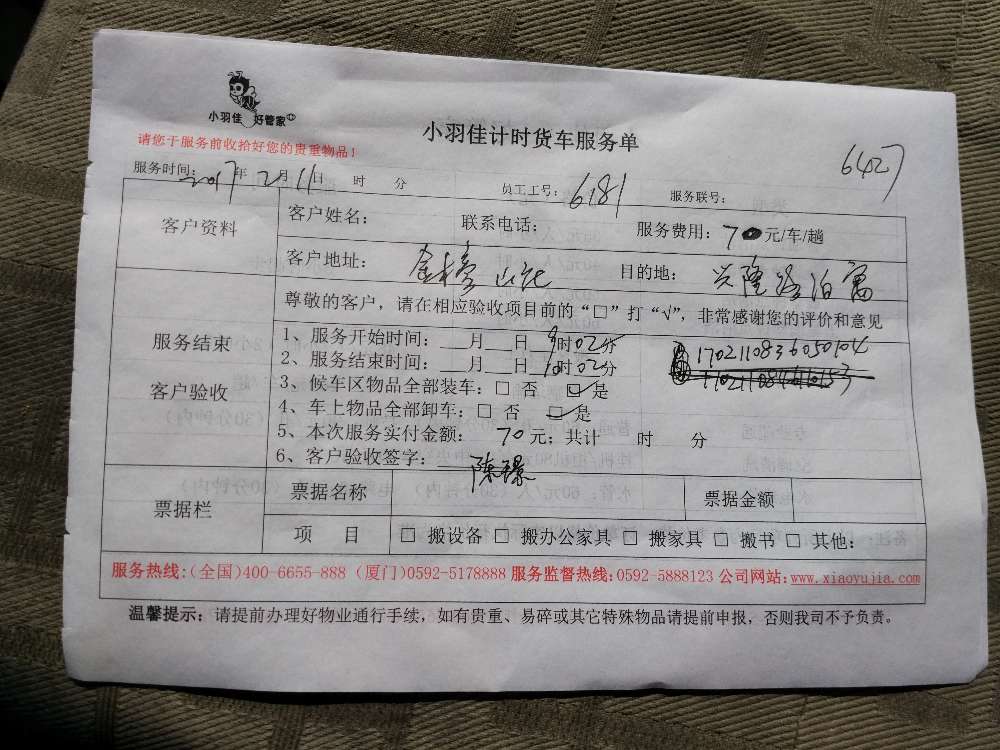 小羽佳 好管家
小羽佳计时货车服务单
请您于服务前收拾好您的贵重物品！
6427
服务时间：2017年2月11日 时 分 员工工号：6181 服务联号：
客户资料
客户姓名： 联系电话： 服务费用：70元/车/趟
客户地址：金榜山庄 目的地：兴隆路泊寓
服务结束
客户验收
尊敬的客户，请在相应验收项目前的“□”打“√”，非常感谢您的评价和意见
1、服务开始时间：___月___日 9时02分
2、服务结束时间：___月___日 10时02分
1702110836050104
3、候车区物品全部装车：□ 否 ☑ 是
4、车上物品全部卸车：□ 否 ☑ 是
5、本次服务实付金额：70元；共计 时 分
6、客户验收签字：陈
票据栏
票据名称 票据金额
项 目 □ 搬设备 □ 搬办公家具 □ 搬家具 □ 搬书 □ 其他：
服务热线：(全国)400-6655-888 (厦门)0592-5178888 服务监督热线：0592-5888123 公司网站：www.xiaoyujia.com
温馨提示：请提前办理好物业通行手续，如有贵重、易碎或其它特殊物品请提前申报，否则我司不予负责。